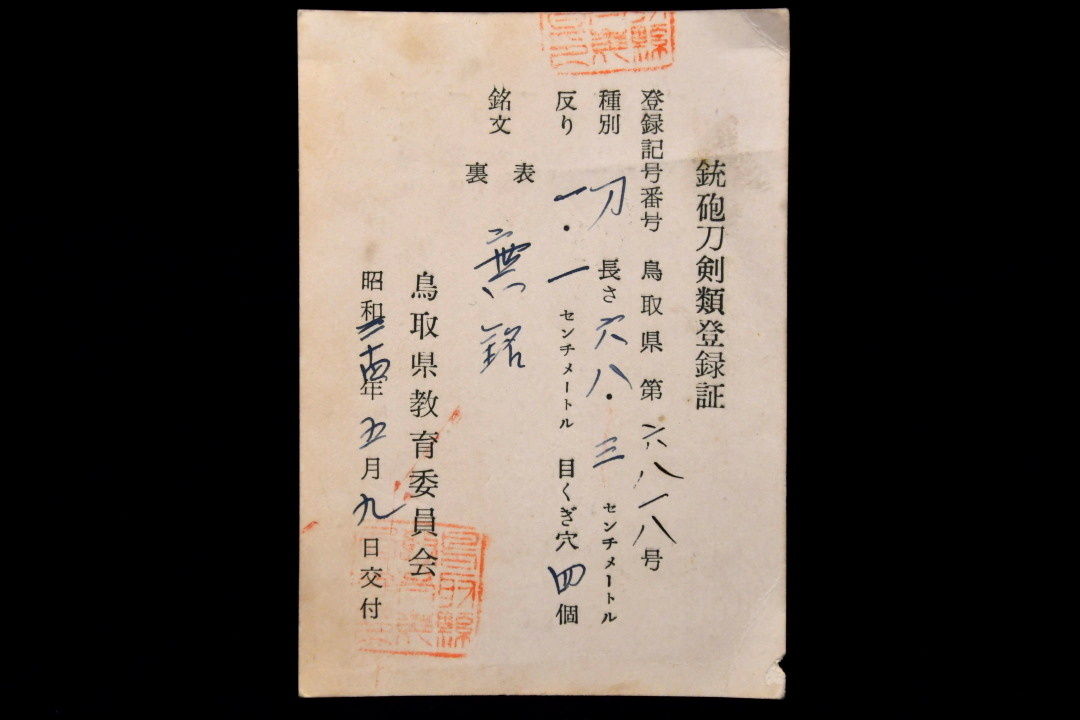 銃砲刀剣類登録証
登録記号番号 鳥取県 第 六八一八 号
種別 刀 長さ 六八・三 センチメートル
反り 一・一 センチメートル 目くぎ穴 四 個
銘文 表 裏 無銘
鳥取県教育委員会
昭和 三十四年 五月 九日交付